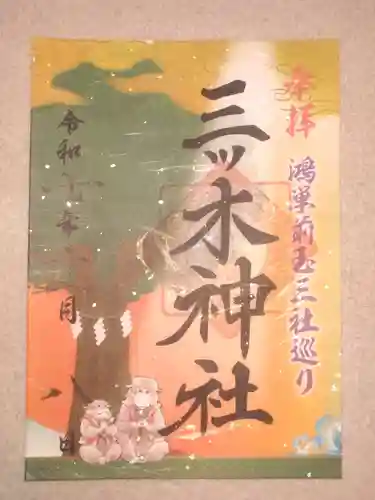 奉拝
鴻巣前玉三社巡り
三ッ木神社
令和 年 月八日